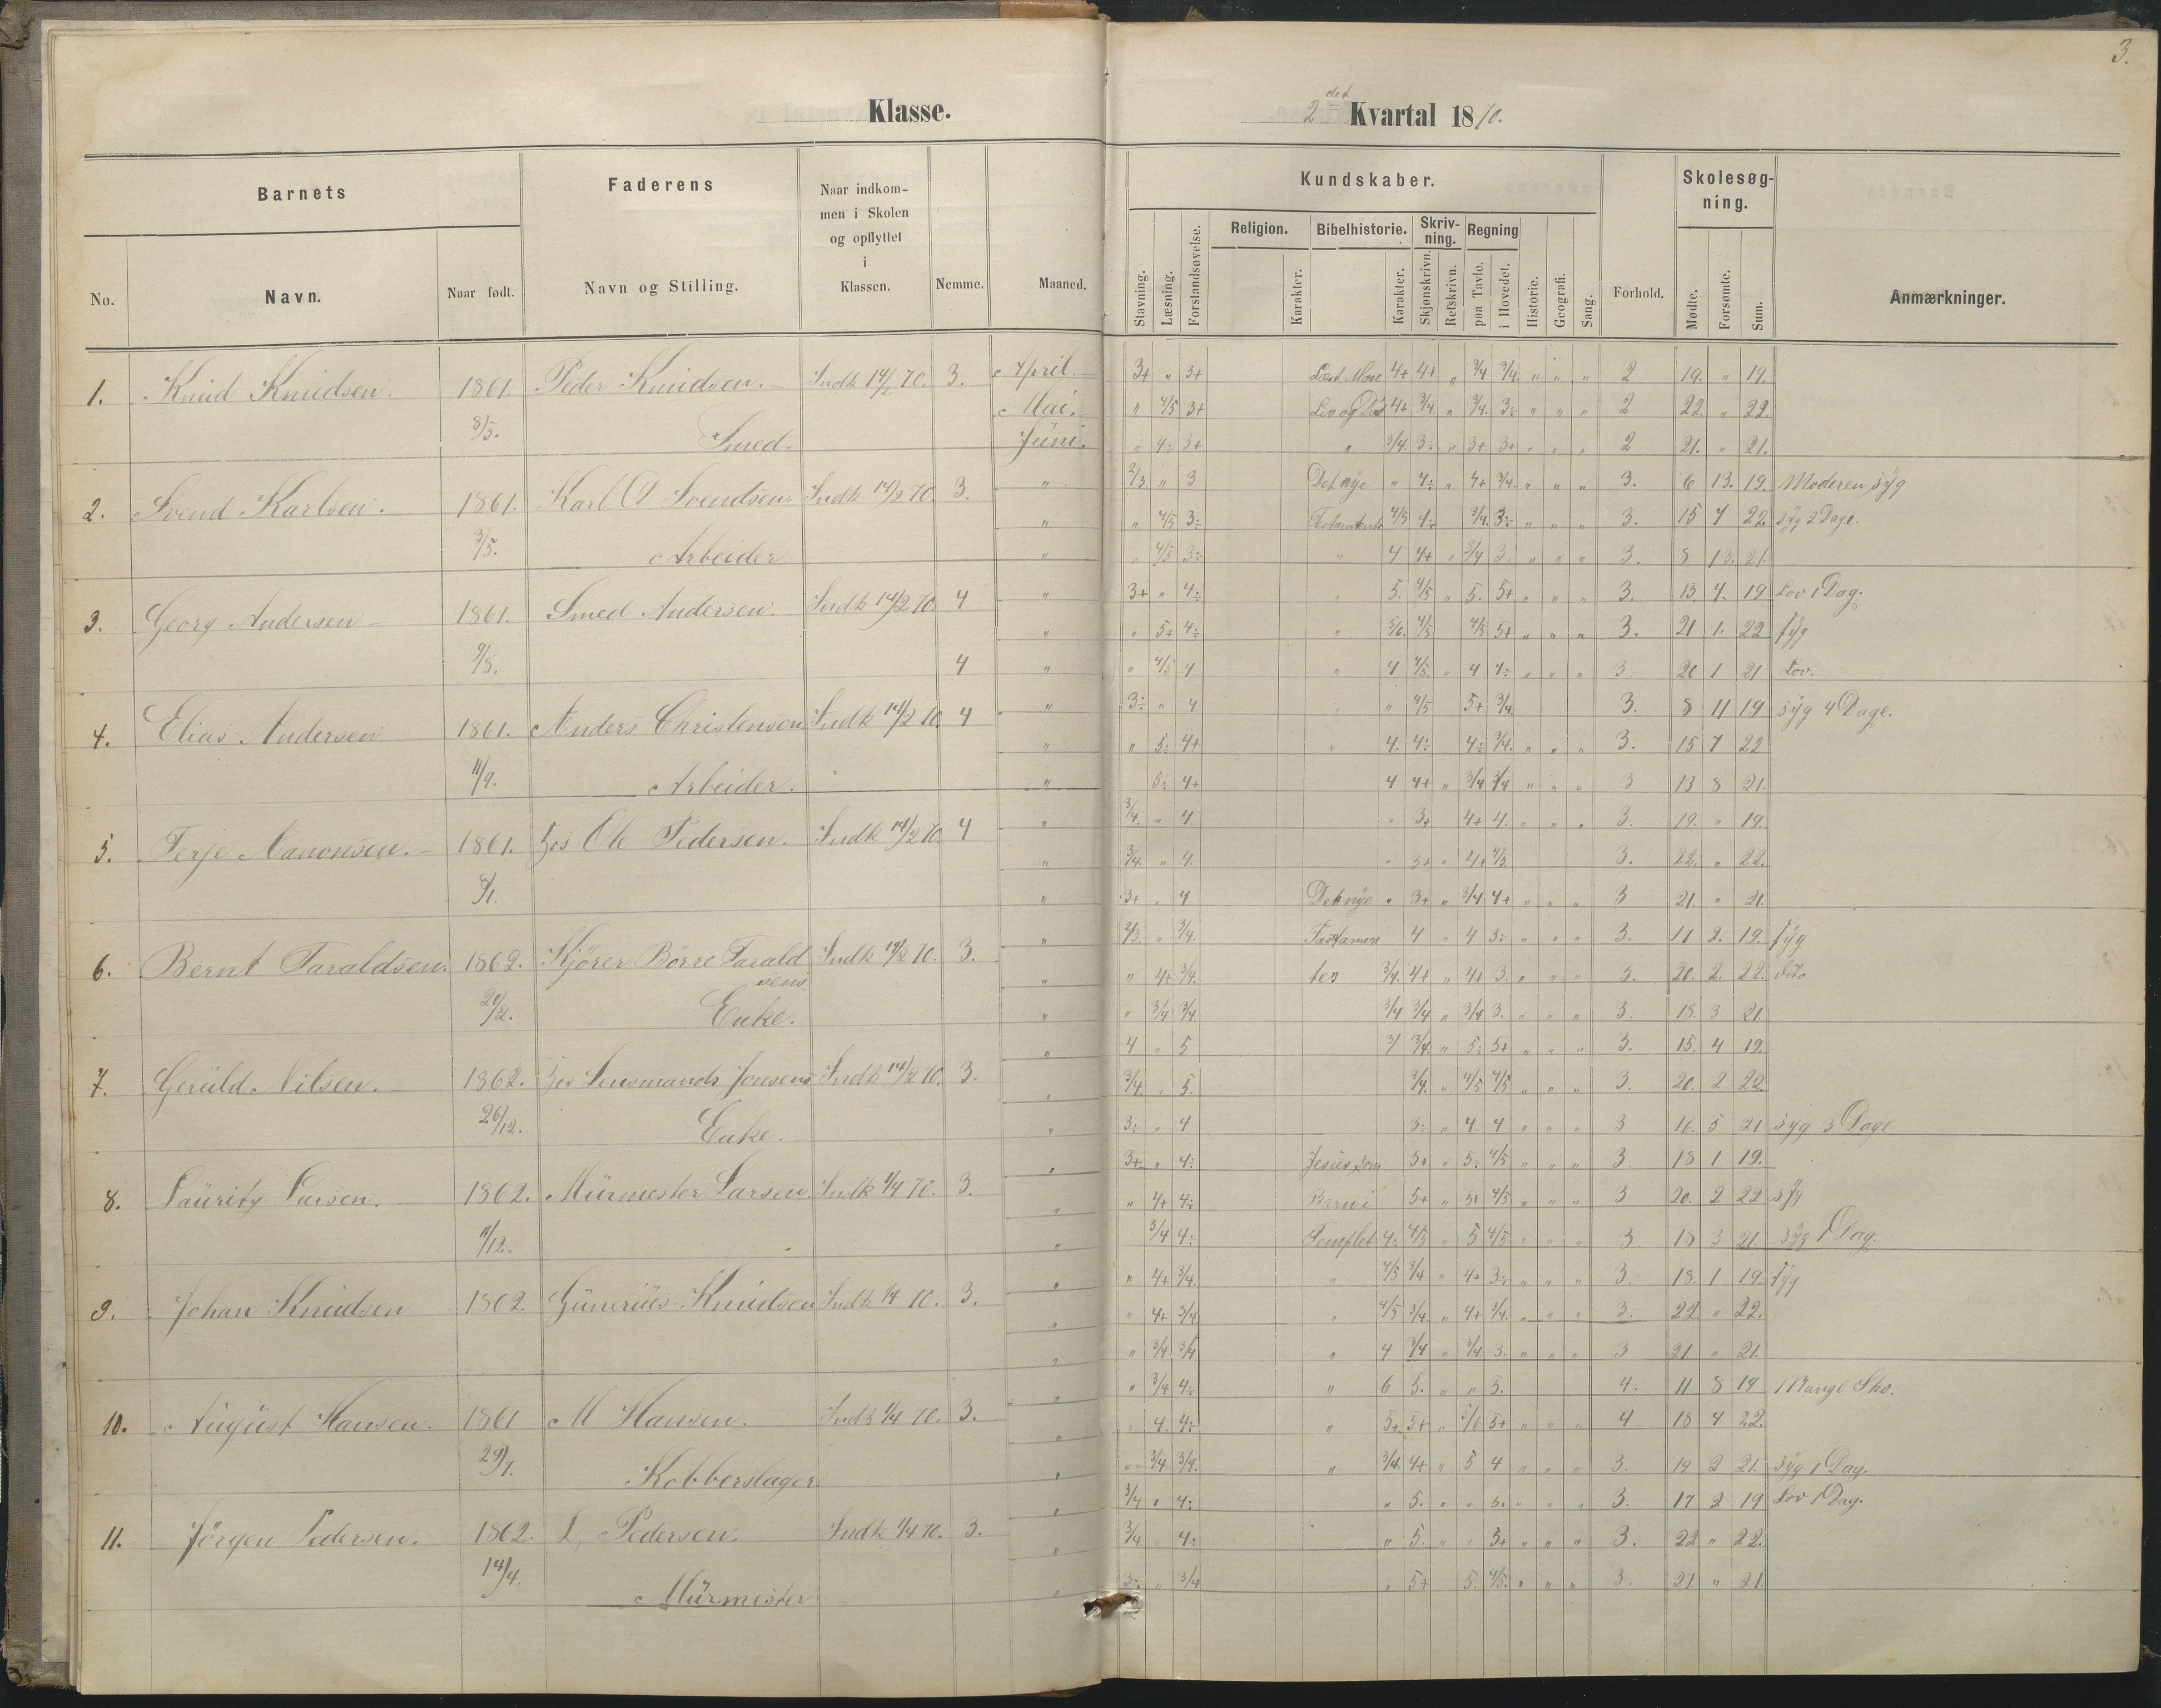 3.
Klasse.
2det Kvartal 1870.
Barnets
Faderens
Naar indkom-
men i Skolen
og opflyttet
i
Klassen.
Nemme.
Maaned.
No.
Navn.
Naar født.
Navn og Stilling.
Kundskaber.
Skolesøg-
ning.
Stavning.
Læsning.
Forstandsøvelse.
Religion.
Karakter.
Bibelhistorie.
Karakter.
Skriv-
ning.
Skjønskrivn.
Retskrivn.
Regning
paa Tavle.
i Hovedet.
Historie.
Geografi.
Sang.
Forhold.
Mødte.
Forsømte.
Sum.
Anmærkninger.
1. Knud Knudsen. 1861. Peder Knudsen. Indk 14/2 70. 3. April. 3+ " 3+ 4+ 4+ " 3/4 3/4. " " " 2 19. " 19.
8/5. Mai. " 4/5 3+ 4+ 3/4. " 3/4. 3÷ " " " 2 22. " 22.
Smed. Juni. " 4÷ 3+ " 3/4. 3÷ " 3+ 3+ " " " 2 21. " 21.
2. Svend Karlsen. 1861. Karl A Svendsen Indk 14/2 70. 3. " 2/3 " 3 Det nye " 4÷ " 4+ 3/4. " " " 3. 6 13. 19. Moderen syg
3/5. " " 4/5 3÷ 4/5 4÷ 3/4. 3÷ " " " 3. 15 7 22. syg 2 Dage.
Arbeider " " 4/5 3÷ " 4 4+ " 3/4 3. " " " 3. 8 13. 21.
3. Georg Andersen 1861. Smed Andersen. Indk 14/2 70. 4 " 3+ " 4÷ " 5. 4/5 " 5. 5+ " " " 3. 15 4. 19 Lov 1 Dag.
9/8. " " 5+ 4÷ " 5/6. 4/5 4/5 5+ " " " 3. 21 1. 22 syg
4 " " 4/5 4 " 4 4/5. " 4 4÷ " " " 3 20 1 21 Lov.
4. Elias Andersen 1861. Anders Christensen Indk 14/2 70. 4 " 3÷ " 4 " 4/5 5+ 3/4. 3. 8 11 19 syg 4 Dage.
11/9. " " 5÷ 4+ " 4. 4÷ 4÷ 3/4. " " " 3. 15 7 22
Arbeider. " 5÷ 4+ 4 4+ " 3/4 3/4 " " " 3 13 8 21.
5. Terje Aanonsen. 1861. hos Ole Pedersen. Indk 14/2 70. 4 " 3/4. " 4. " 3+ 4+ 4. " " " 3. 19. " 19.
" 3/4. " 4. " 3+ " 4+ 4/5. 3. 22. " 22.
8/1. " 3+ " 4 Det nye " 3+ " 3/4 4+ " " " 3 21. " 21.
6. Bernt Taraldsen. 1862. Kjører Børre Tarald Indk 14/2 70. 3. " 2/3. " 3/4. 4 " 4 3÷ " " " 3. 17 2. 19. syg
sens " " 4+ 3/4. ter 3/4. 4+ " 4+ 3. " " " 3. 20. 2. 22. dito
20/2. Enke. " " 3/4 3/4. 3/4 3/4 " 3/4 3. " " " 3. 18. 3 21.
7. Gerüld Nilsen. 1862. hos Lensmands Jensens Indk 14/2 70. 3. " 4 " 5 3/4. " 5÷ 5+ " " " 3. 15. 4 19.
" 3/4. " 5. 3/4. " 4/5 4/5 " " " 3. 20. 2 22.
26/12. Enke. " 3÷ " 4 3÷ " 4. 4 " " " 3 16. 5 21 syg 3 Dage
8. Lauritz Larsen. 1862. Mürmester Larsen. Indk 1/4 70. 3. " 3+ " 4÷ Jesus som 5+ " 5÷ 4/5 " " " 3. 18 1 19.
" " 4+ 4÷ Barn i 5+ " 5+ 4/5 " " " 3 20. 2 22 syg
11/12. " 3/4 4÷ Templet 4÷ 4/5 " 5 4/5 " " " 3. 18 3 21. syg 1 Dag.
9. Johan Knudsen 1862. Günerius Knudsen Indk 1/4 70. 3. " " 4+ 3/4. " 4/5 3/4 " 4+ 3÷ " " " 3. 18. 1 19. syg
" " 4+ 3/4 " 4/5 3/4. " 4+ 3/4. " " " 3. 22. " 22.
" " 3/4 3/4 " 4 3/4 " 3/4 3. " " " 3 21 " 21.
10. August Hansen. 1861 M Hansen. Indk 1/4 70. 3. " " 3/4 4÷ " 6 5. " " 5. 4. 11 8 19 Mangl Sko.
" " 4. 4÷ " 5+ 5+ " 5/6 5+ " " " 4 18 4 22.
29/1. Kobberslager. " " 3/4 3/4. " 3/4. 4+ " 5 4 " " " 3. 19 2 21. syg 1 Dag.
11. Jörgen Pedersen. 1862. L. Pedersen. Indk 1/4 70. 3. " 3/4 " 4÷ " 5. " " 5. " " " 3. 17 2 19 Lov 1 Dag.
14/4. " 3/4. " 4÷ " 5. " " 5+ " " " 3. 22 " 22.
Mürmester " 3÷ " 3/4 " 5+ 5. 4/5. " " " 3. 21. " 21.